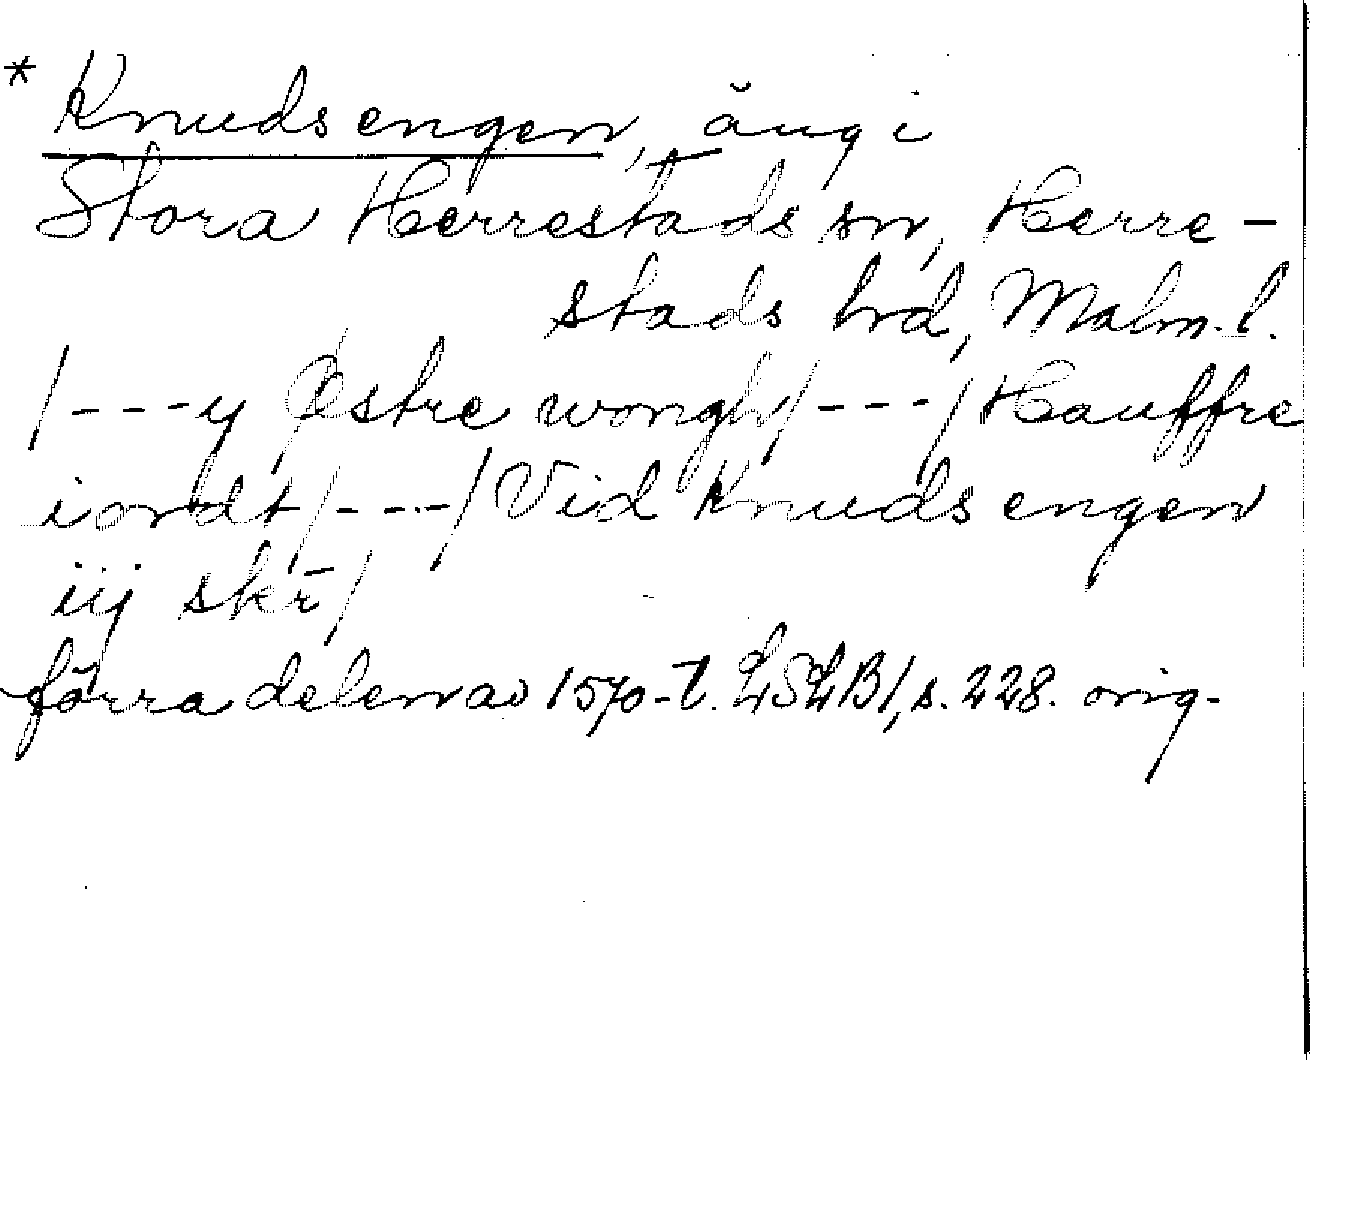 * Knuds engen, äng i
Stora Herrestads sn, Herre-
stads hd, Malm. l.
/---y Østre wongh/---/Hauffre
iordt/---/Vid Knuds engen
iij skr̄/
förra delen av 1570-t. LSLB1, s. 228. orig.